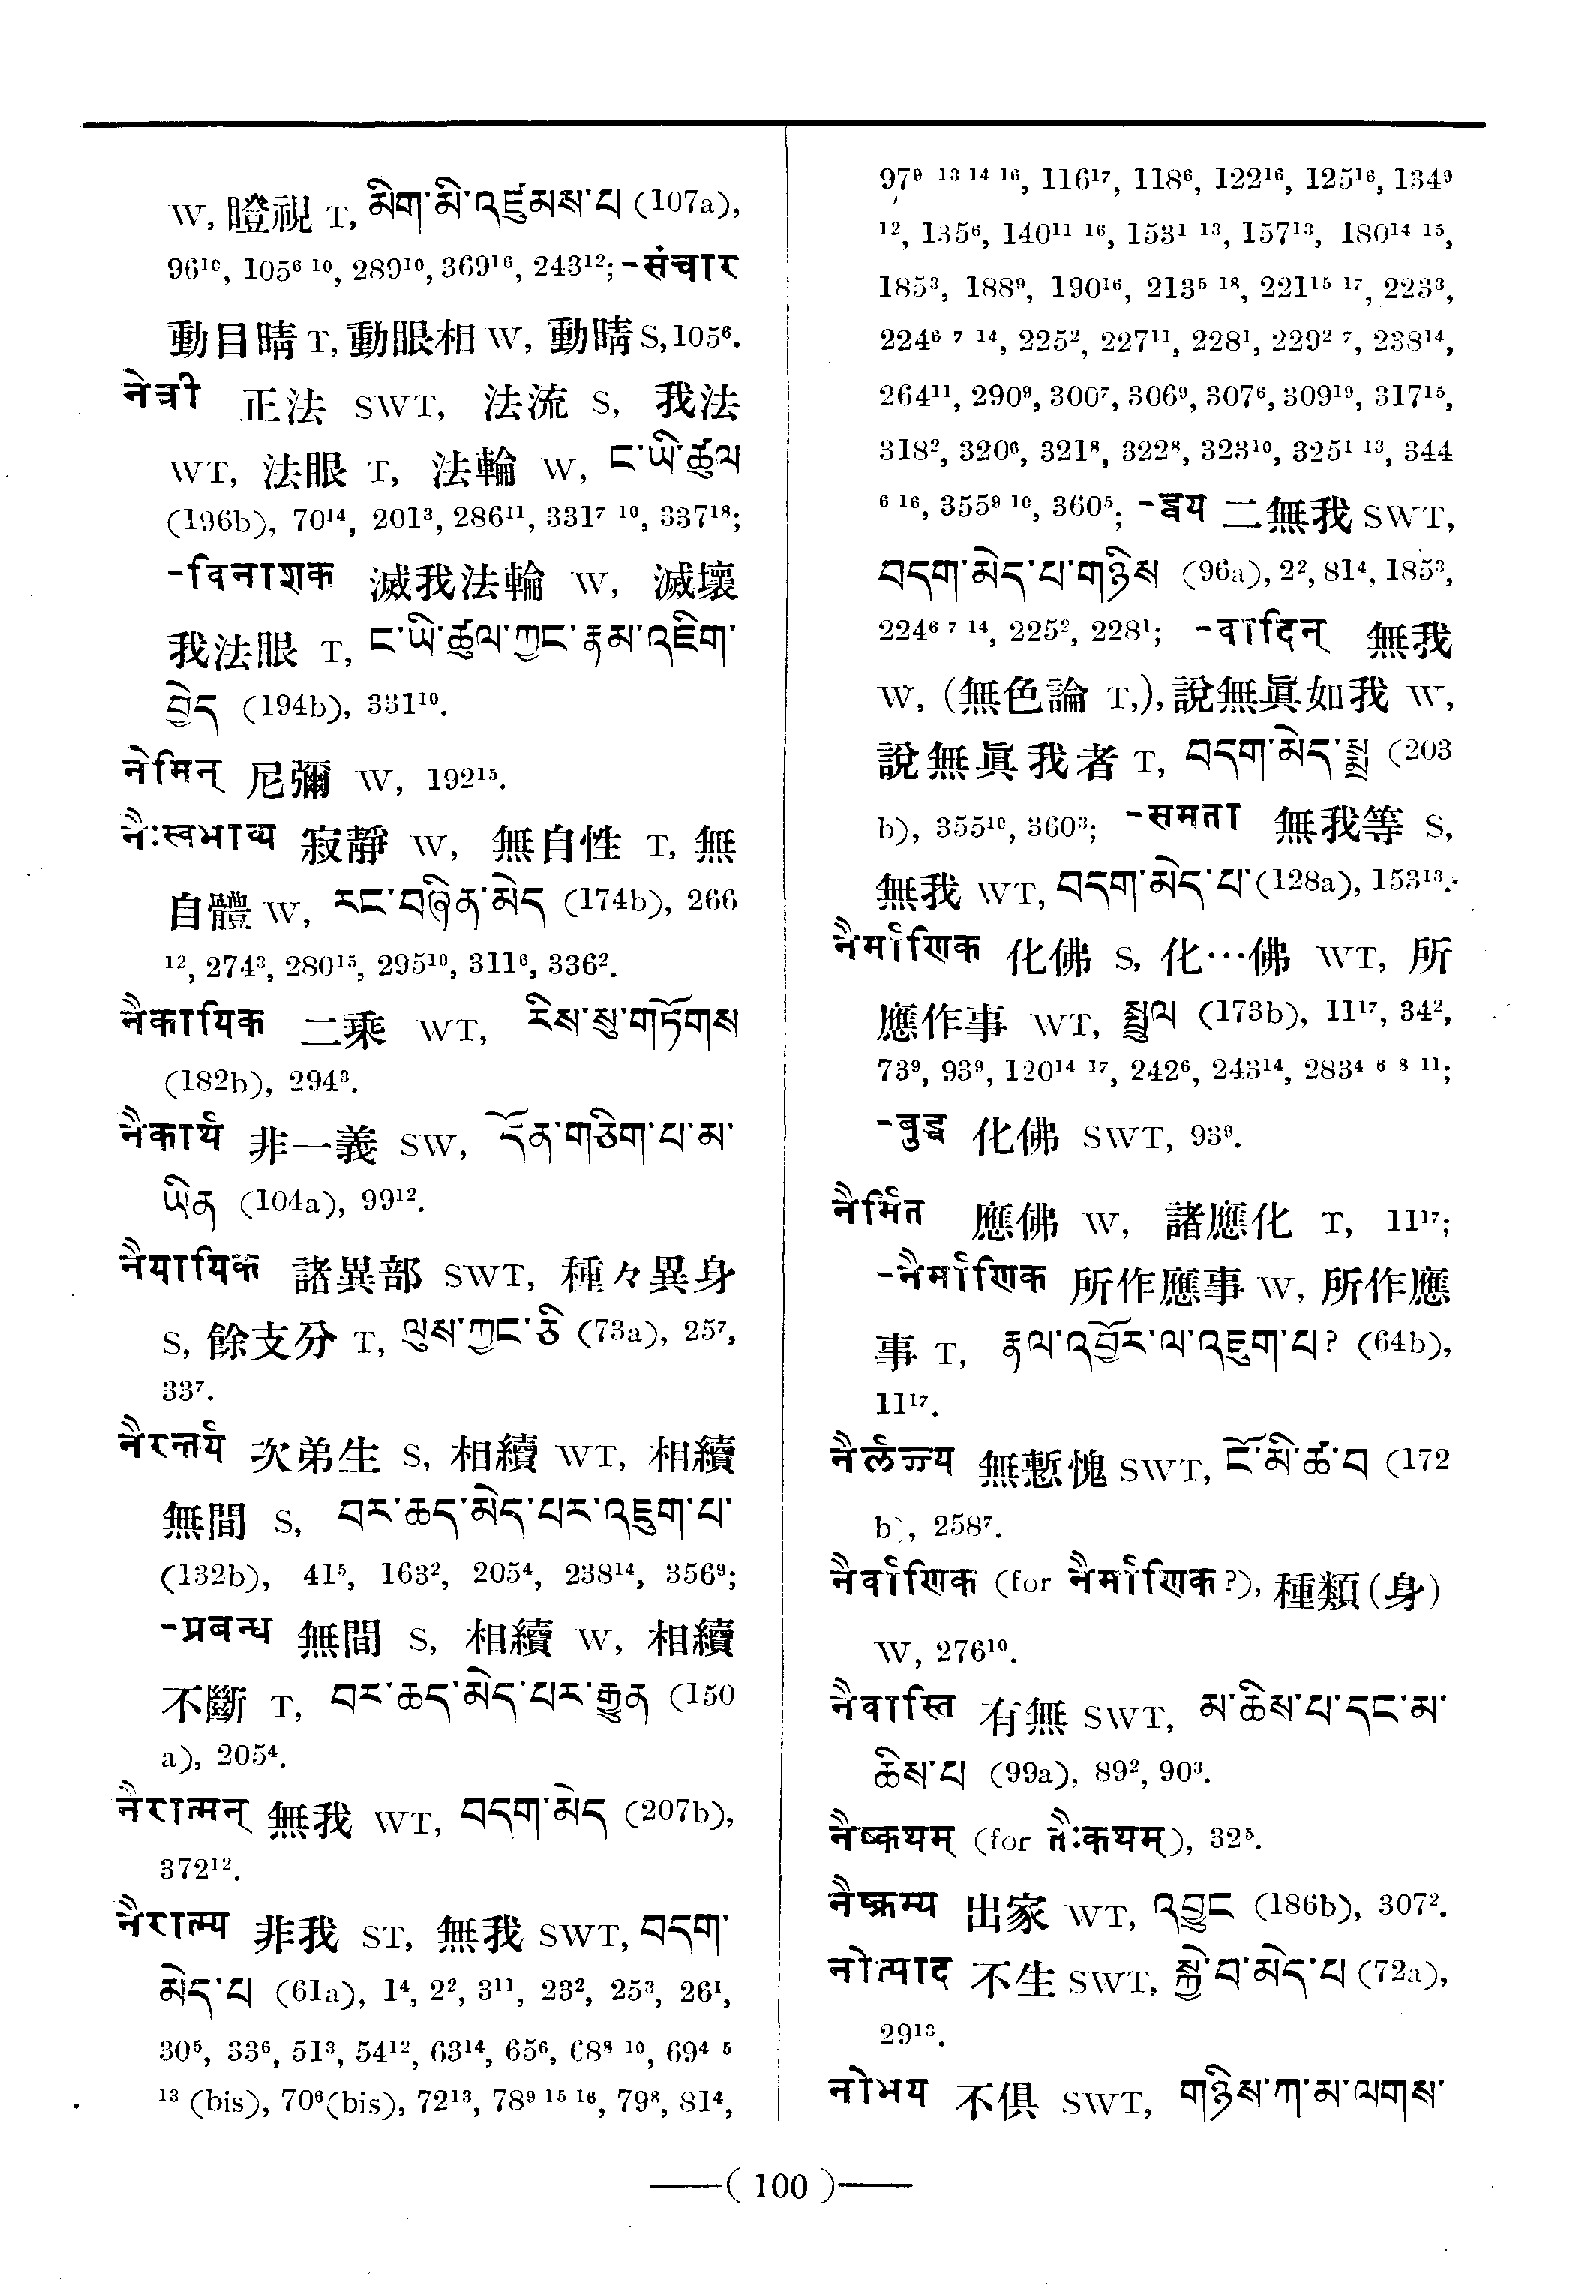 W, 瞪視 T, མིག་མི་འཛུམས་པ (107a),
96¹⁰, 105⁶ ¹⁰, 289¹⁰, 369¹⁶, 243¹²; -संचार
動目睛 T, 動眼相 W, 動睛 S, 105⁶.
नेत्री 正法 SWT, 法流 S, 我法
WT, 法眼 T, 法輪 W, ང་ཡི་ཚུལ
(196b), 70¹⁴, 201³, 286¹¹, 331⁷ ¹⁰, 337¹⁸;
-विनाशक 滅我法輪 W, 滅壞
我法眼 T, ང་ཡི་ཚུལ་ཀྱང་རྣམ་འཇིག་
བྱེད (194b), 331¹⁰.
नेमिन् 尼彌 W, 192¹⁵.
नैःस्वभाव्य 寂靜 W, 無自性 T, 無
自體 W, རང་བཞིན་མེད (174b), 266
¹², 274³, 280¹⁵, 295¹⁰, 311⁶, 336².
नैकायिक 二乘 WT, རིས་སུ་གཏོགས
(182b), 294³.
नैकार्य 非一義 SW, དོན་གཅིག་པ་མ་
ཡིན (104a), 99¹².
नैयायिक 諸異部 SWT, 種々異身
S, 餘支分 T, ལུས་ཀྱང་ཅི (73a), 25⁷,
33⁷.
नैरन्तर्य 次弟生 S, 相續 WT, 相續
無間 S, བར་ཆད་མེད་པར་འཇུག་པ་
(132b), 41⁵, 163², 205⁴, 238¹⁴, 356⁹;
-प्रबन्ध 無間 S, 相續 W, 相續
不斷 T, བར་ཆད་མེད་པར་རྒྱུན (150
a), 205⁴.
नैरात्मन् 無我 WT, བདག་མེད (207b),
372¹².
नैरात्म्य 非我 ST, 無我 SWT, བདག་
མེད་པ (61a), 1⁴, 2², 3¹¹, 23², 25³, 26¹,
30⁵, 33⁶, 51³, 54¹², 63¹⁴, 65⁶, 68⁸ ¹⁰, 69⁴ ⁵
¹³ (bis), 70⁶(bis), 72¹³, 78⁹ ¹⁵ ¹⁶, 79⁸, 81⁴,
97⁹ ¹³ ¹⁴ ¹⁶, 116¹⁷, 118⁶, 122¹⁶, 125¹⁶, 134⁹
¹², 135⁶, 140¹¹ ¹⁶, 153¹ ¹³, 157¹³, 180¹⁴ ¹⁵,
185³, 188⁹, 190¹⁶, 213⁵ ¹⁸, 221¹⁵ ¹⁷, 223³,
224⁶ ⁷ ¹⁴, 225², 227¹¹, 228¹, 229² ⁷, 238¹⁴,
264¹¹, 290⁹, 300⁷, 306⁹, 307⁶, 309¹⁹, 317¹⁵,
318², 320⁶, 321⁸, 322⁸, 323¹⁰, 325¹ ¹³, 344
⁶ ¹⁶, 355⁹ ¹⁰, 360⁵; -द्वय 二無我 SWT,
བདག་མེད་པ་གཉིས (96a), 2², 81⁴, 185³,
224⁶ ⁷ ¹⁴, 225², 228¹; -वादिन् 無我
W, (無色論 T,), 說無眞如我 W,
說無眞我者 T, བདག་མེད་སྨྲ (203
b), 355¹⁰, 360³; -समता 無我等 S,
無我 WT, བདག་མེད་པ་ (128a), 153¹³.
नैर्माणिक 化佛 S, 化…佛 WT, 所
應作事 WT, སྤྲུལ (173b), 11¹⁷, 34²,
73⁹, 93⁹, 120¹⁴ ¹⁷, 242⁶, 243¹⁴, 283⁴ ⁶ ⁸ ¹¹;
-बुद्ध 化佛 SWT, 93⁹.
नैर्मित 應佛 W, 諸應化 T, 11¹⁷;
-नैर्माणिक 所作應事 W, 所作應
事 T, རྣལ་འབྱོར་ལ་འཇུག་པ? (64b),
11¹⁷.
नैर्लज्ज्य 無慙愧 SWT, ངོ་མི་ཚ་བ (172
b), 258⁷.
नैर्वाणिक (for नैर्माणिक?), 種類(身)
W, 276¹⁰.
नैवास्ति 有無 SWT, མ་ཆིས་པ་དང་མ་
ཆིས་པ (99a), 89², 90³.
नैष्कयम् (for तैःकयम्), 32⁵.
नैष्क्रम्य 出家 WT, འབྱུང (186b), 307².
नोत्पाद 不生 SWT, སྐྱེ་བ་མེད་པ (72a),
29¹³.
नोभय 不俱 SWT, གཉིས་ཀ་མ་ལགས་
—( 100 )—